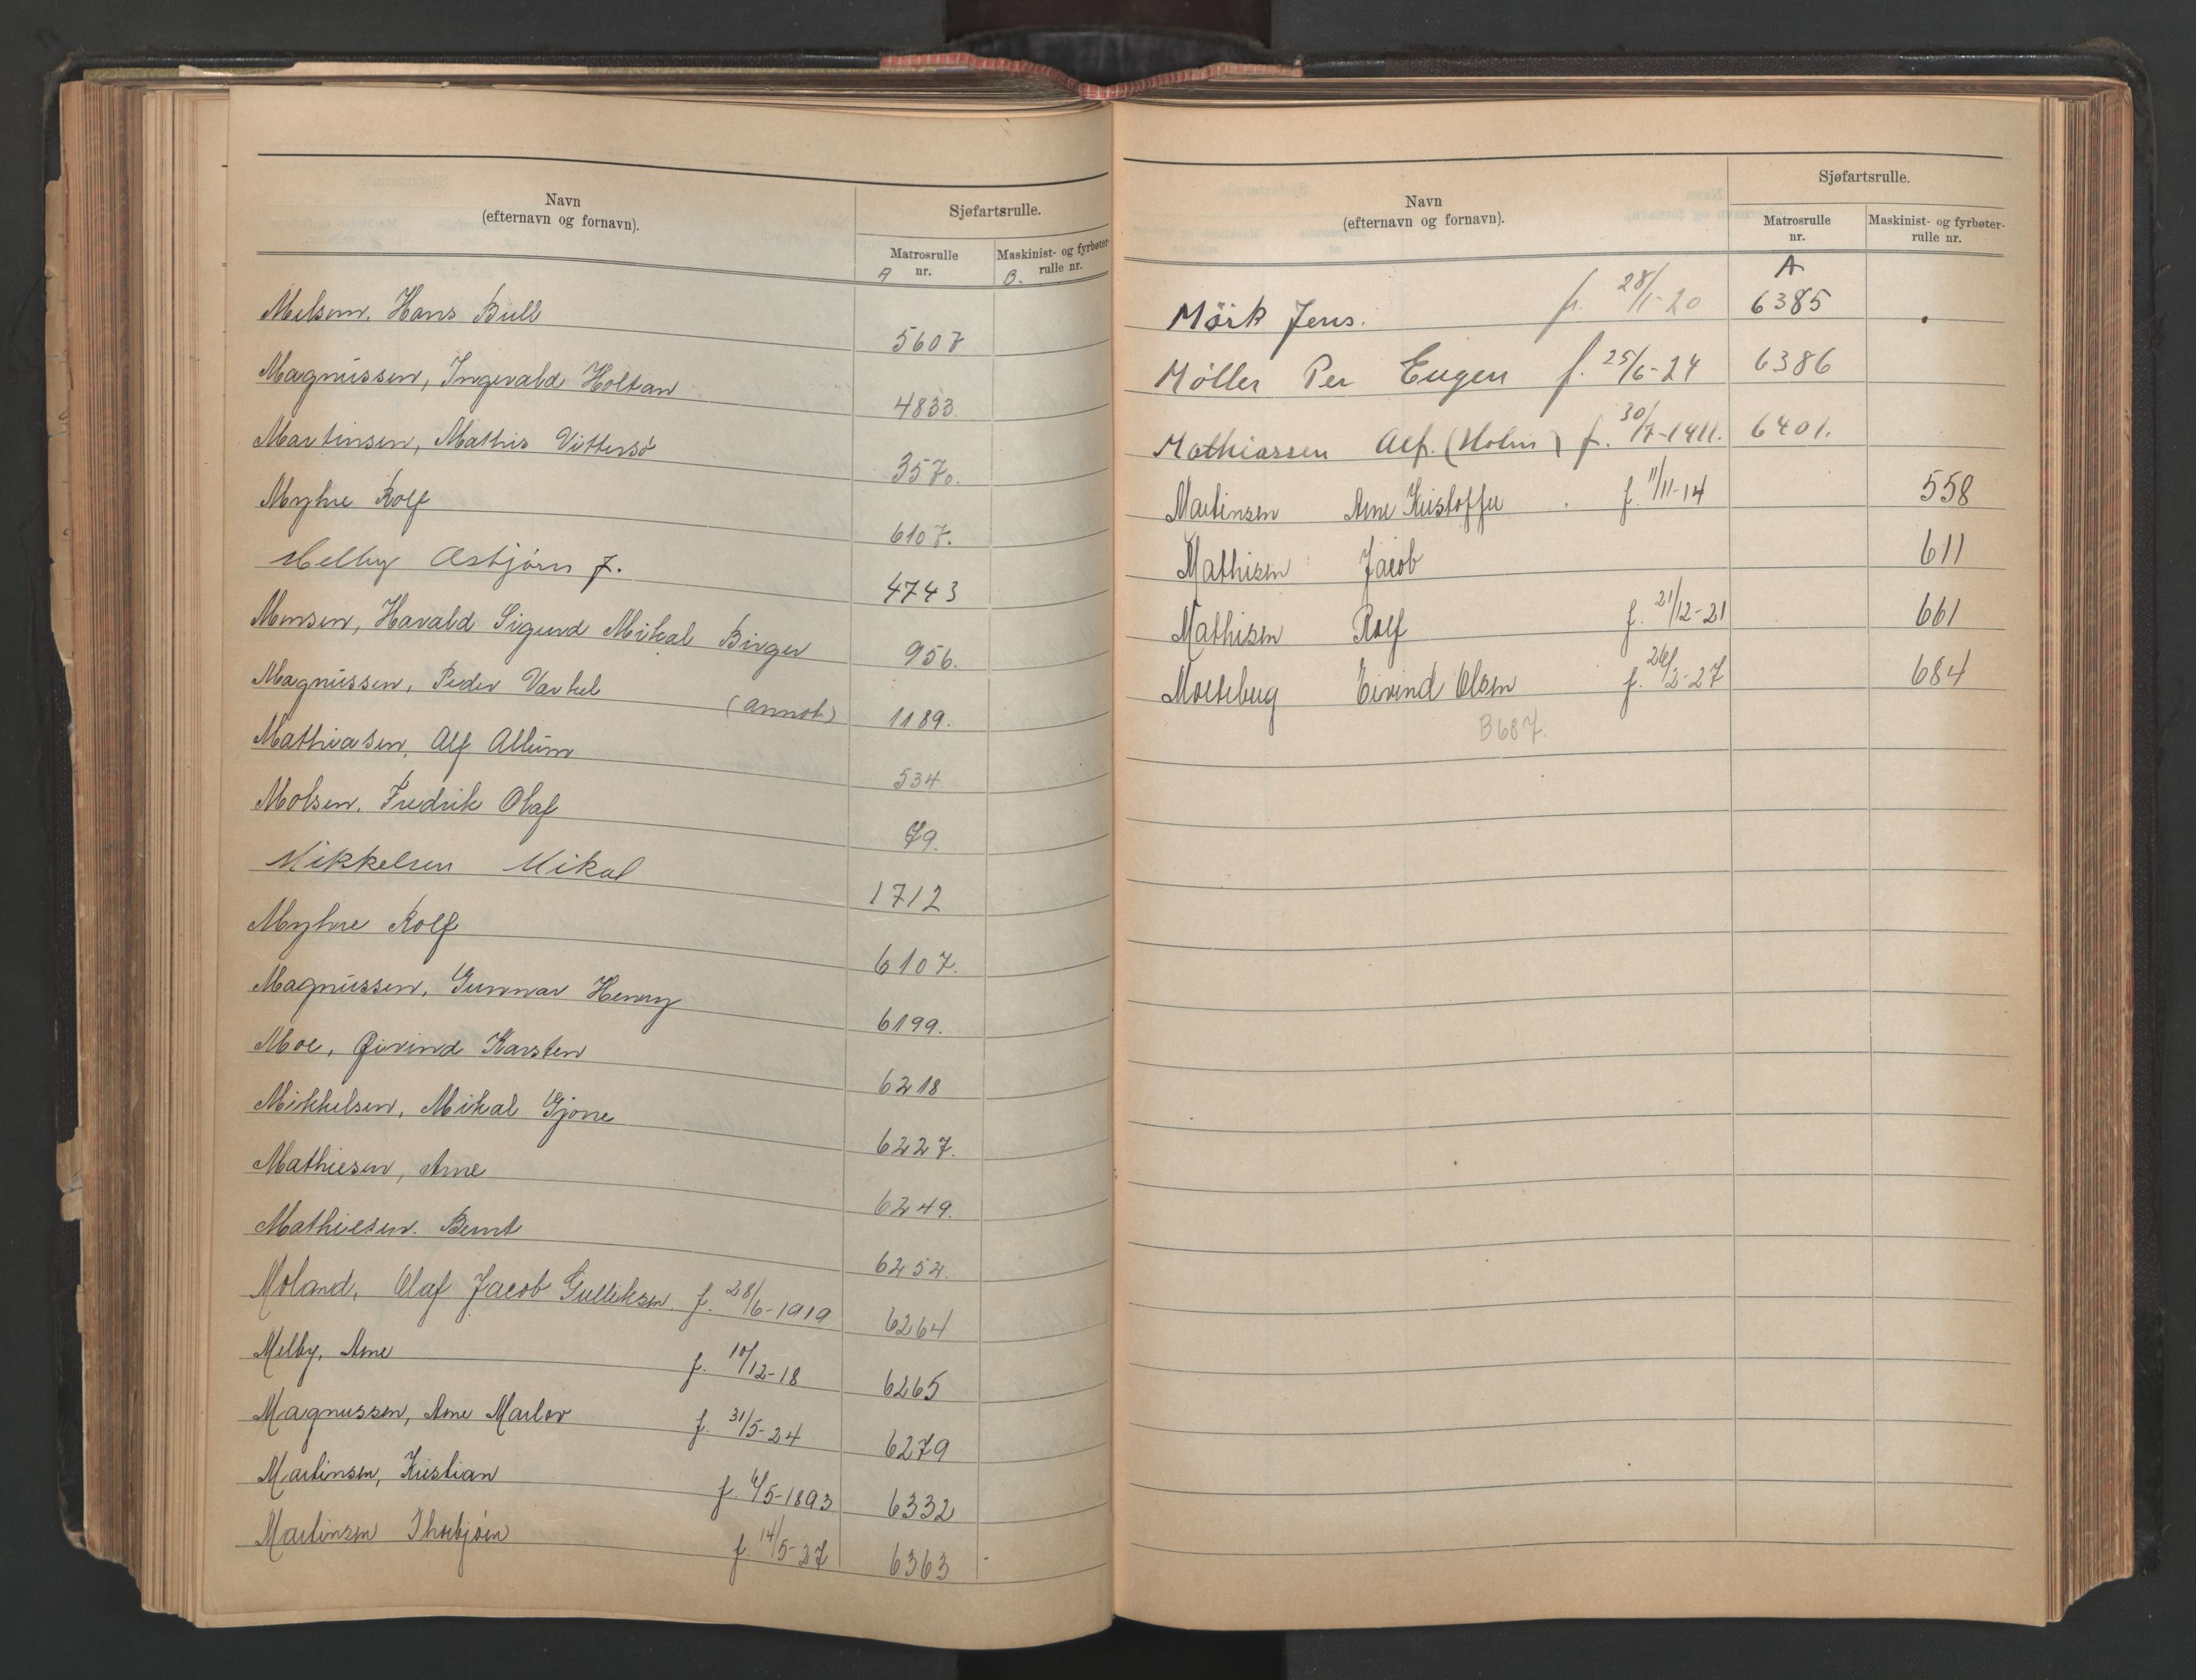 Navn
(efternavn og fornavn).
Sjøfartsrulle.
Matrosrulle nr.
Maskinist- og fyrbøter-rulle nr.
A
B.
Melsom, Hans Bull 5607
Magnussen, Ingevald Holtan 4833.
Martinsen, Mathis Vittersø 3570.
Myhre Rolf 6107.
Melby Asbjørn J. 4743
Monsen, Harald Sigurd Mikal Birger 956.
Magnussen, Peder Varhel (annot) 1189.
Mathiasen, Alf Allum 534
Molsen, Fredrik Olaf 79.
Mikkelsen Mikal 1712
Myhre Rolf 6107.
Magnussen, Gunnar Henry 6199.
Moe, Øivind Karsten 6218
Mikkelsen, Mikal Gjone 6227.
Mathiesen, Arne 6249.
Mathiesen. Bernt 6252.
Moland, Olaf Jacob Gulliksen f. 28/6-1919 6264
Melby, Arne f. 10/12-18 6265
Magnussen, Arne Marlov f. 31/5-24 6279
Martinsen, Kristian f. 6/5-1893 6332
Martinsen Thorbjørn f. 14/5-27 6363
Navn
(efternavn og fornavn).
Sjøfartsrulle.
Matrosrulle nr.
Maskinist- og fyrbøter-rulle nr.
A
Mörk Jens. f. 28/1-20 6385
Møller Per Eugen f. 25/6-24 6386
Mathiassen Alf. (Holm) f. 30/7-1911. 6401.
Martinsen Arne Kristoffer f. 11/11-14 558
Mathisen Jacob 611
Mathisen Rolf f. 21/12-21 661
Eivind Olsen f. 26/2-27 684
B687.